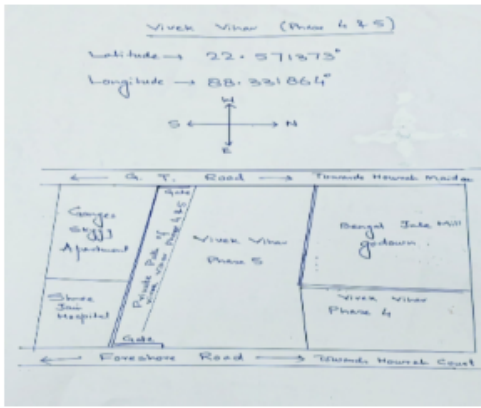 Vivek Vihar (Phase 4 & 5)
Latitude → 22.571373°
Longitude → 88.331864°
W
S N
E
← G. T. Road → Towards Howrah Maidan
Gate
Ganges
Apartment
Private Path of
Vivek Vihar Phase 4 & 5
Vivek Vihar
Phase 5
Bengal Jute Mill
godown
Shree
Jain
Hospital
Vivek Vihar
Phase 4
Gate
← Foreshore Road → Towards Howrah Court